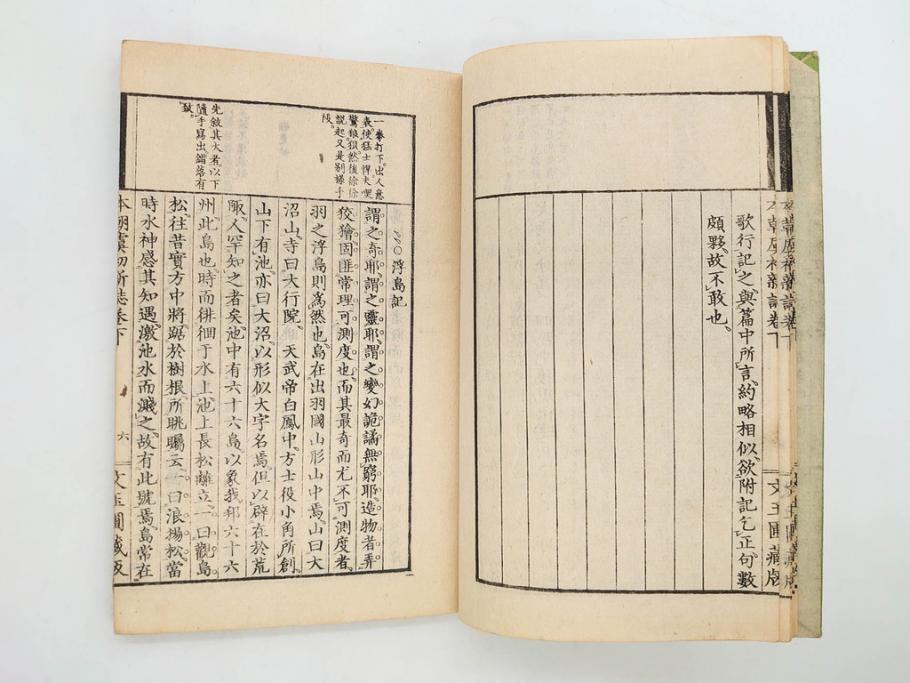 歌行記之與篇中所言、約略相似、欲附記乞正、句數
頗夥、故不敢也。
文玉圃藏版
一拳打下。出人意
表。使猛士悍夫喫
驚狼狽。然後徐徐
説起。又是別
先敘其大者。以下
隨手寫出。錯落有
致。
〇浮島記
謂之奇耶。謂之靈耶。謂之變幻詭譎無窮耶。造物者弄
狡獪。固匪常理可測度也。而其最奇而尤不可測度者。
羽之浮島則爲然也。島在出羽國山形山中焉。山曰大
沼山。寺曰大行院。天武帝白鳳中。方士役小角所創。
山下有池。亦曰大沼。以形似大字名焉。但以辟在於荒
陬。人罕知之者矣。池中有六十六島。以象我邦六十六
州。此島也。時而徘徊于水上。池上長松離立。一曰觀島
松。往昔實方中將踞於樹根。所眺矚云。一曰浪揚松。當
時水神感其知遇。激池水而濺之。故有此號焉。島常在
本朝虞初新誌卷下 六 文玉圃藏版